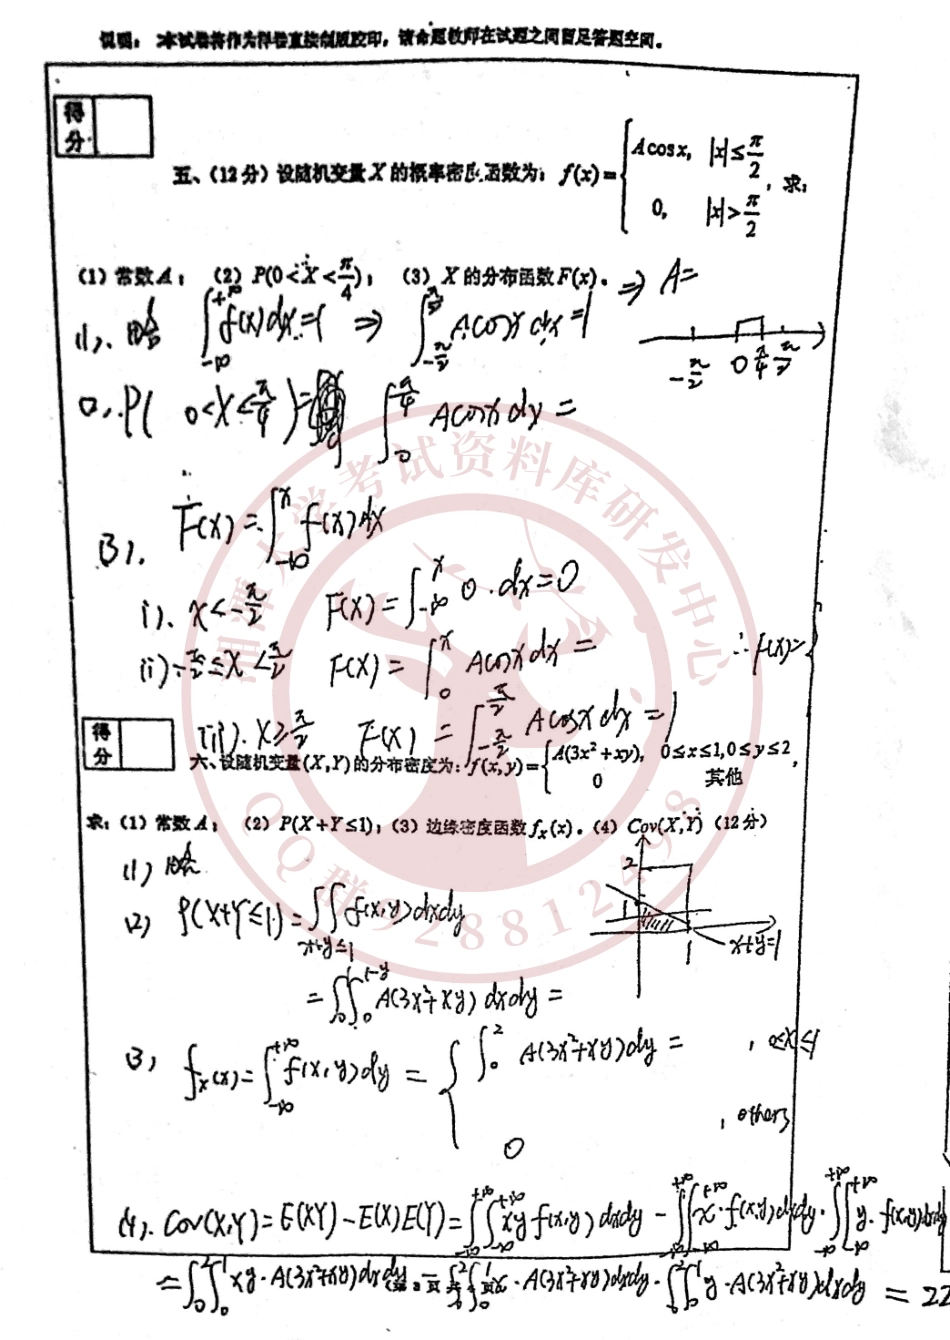 说明：本试卷将作为样卷直接制版胶印，请命题教师在试题之间留足答题空间。
得分
五、(12分) 设随机变量 X 的概率密度函数为：f(x)={ A cos x, |x|≤π/2 ; 0, |x|>π/2 , 求：
(1) 常数 A； (2) P(0<X<π/4)； (3) X 的分布函数 F(x)。 ⇒ A=
(1). 由 ∫_{-∞}^{+∞} f(x)dx=1 ⇒ ∫_{-π/2}^{π/2} A cosx dx =1
-π/2 0 π/4 π/2
P( 0<X<π/4 )= ∫_0^{π/4} A cosx dx =
(3). F(x) = ∫_{-∞}^x f(x)dx
i). x<-π/2 F(x)=∫_{-∞}^x 0·dx=0
ii) -π/2≤x<π/2 F(x)= ∫_0^x A cosx dx =
∴ f(x)={
iii). x≥π/2 F(x) = ∫_{-π/2}^{π/2} A cosx dx =1
得分
六、设随机变量 (X,Y) 的分布密度为：f(x,y)={ A(3x²+xy), 0≤x≤1,0≤y≤2 ; 0 其他 ,
求：(1) 常数 A； (2) P(X+Y≤1)；(3) 边缘密度函数 f_x(x)。(4) Cov(X,Y) (12分)
(1) 略
2 1 1 x+y=1
(2) P(X+Y≤1)=∫∫_{x+y≤1} f(x,y)dxdy
= ∫_0^1∫_0^{1-y} A(3x²+xy) dxdy =
(3) f_x(x)=∫_{-∞}^{+∞} f(x,y)dy = { ∫_0^2 A(3x²+xy)dy = , 0≤x≤1
0 , others
(4). Cov(X,Y)=E(XY)-E(X)E(Y)=∫_{-∞}^{+∞}∫_{-∞}^{+∞} xy f(x,y) dxdy - ∫_{-∞}^{+∞}∫_{-∞}^{+∞} x·f(x,y)dxdy·∫_{-∞}^{+∞}∫_{-∞}^{+∞} y·f(x,y)dxdy
=∫_0^2∫_0^1 xy·A(3x²+xy)dxdy - ∫_0^2∫_0^1 x·A(3x²+xy)dxdy·∫_0^2∫_0^1 y·A(3x²+xy)dxdy =
湘潭大学考试资料库研发中心
QQ群928812498